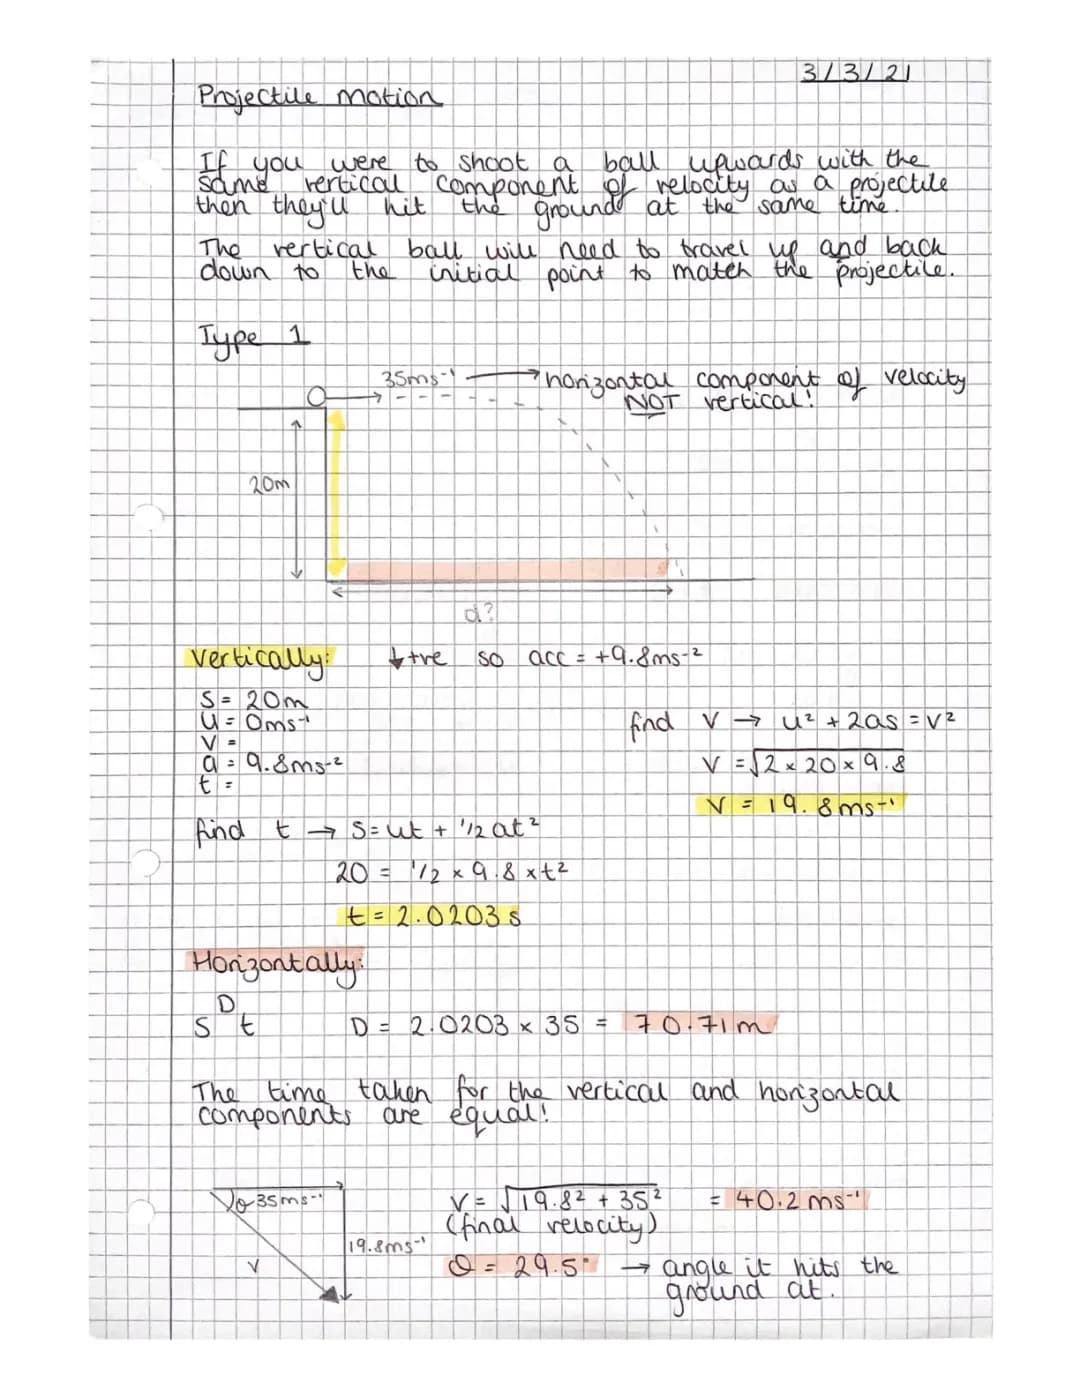 3/3/21
Projectile motion
If you were to shoot a ball upwards with the
same vertical component of velocity as a projectile
then they'll hit the ground at the same time.
The vertical ball will need to travel up and back
down to the initial point to match the projectile.
Type 1
35ms⁻¹ → horizontal component of velocity
NOT vertical!
20m
d?
Vertically: ↓+ve so acc = +9.8ms⁻²
S = 20m
U = 0ms⁻¹
V =
a = 9.8ms⁻²
t =
find V → u² + 2as = v²
V = √2 × 20 × 9.8
V = 19.8ms⁻¹
find t → S = ut + 1/2 at²
20 = 1/2 × 9.8 × t²
t = 2.0203s
Horizontally:
D
S t
D = 2.0203 × 35 = 70.71m
The time taken for the vertical and horizontal
components are equal!
θ 35ms⁻¹
19.8ms⁻¹
V
V = √19.8² + 35² = 40.2ms⁻¹
(final velocity)
θ = 29.5° → angle it hits the
ground at.